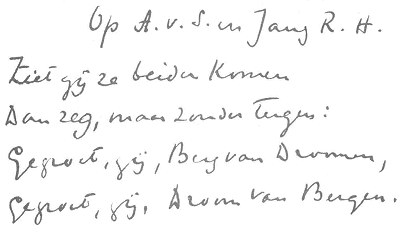 Op A. v. S. en Jany R. H.
Ziet gij ze beiden komen
Dan zeg, maar zonder tergen:
Gegroet, gij, Berg van Droomen,
Gegroet, gij, Droom van Bergen.